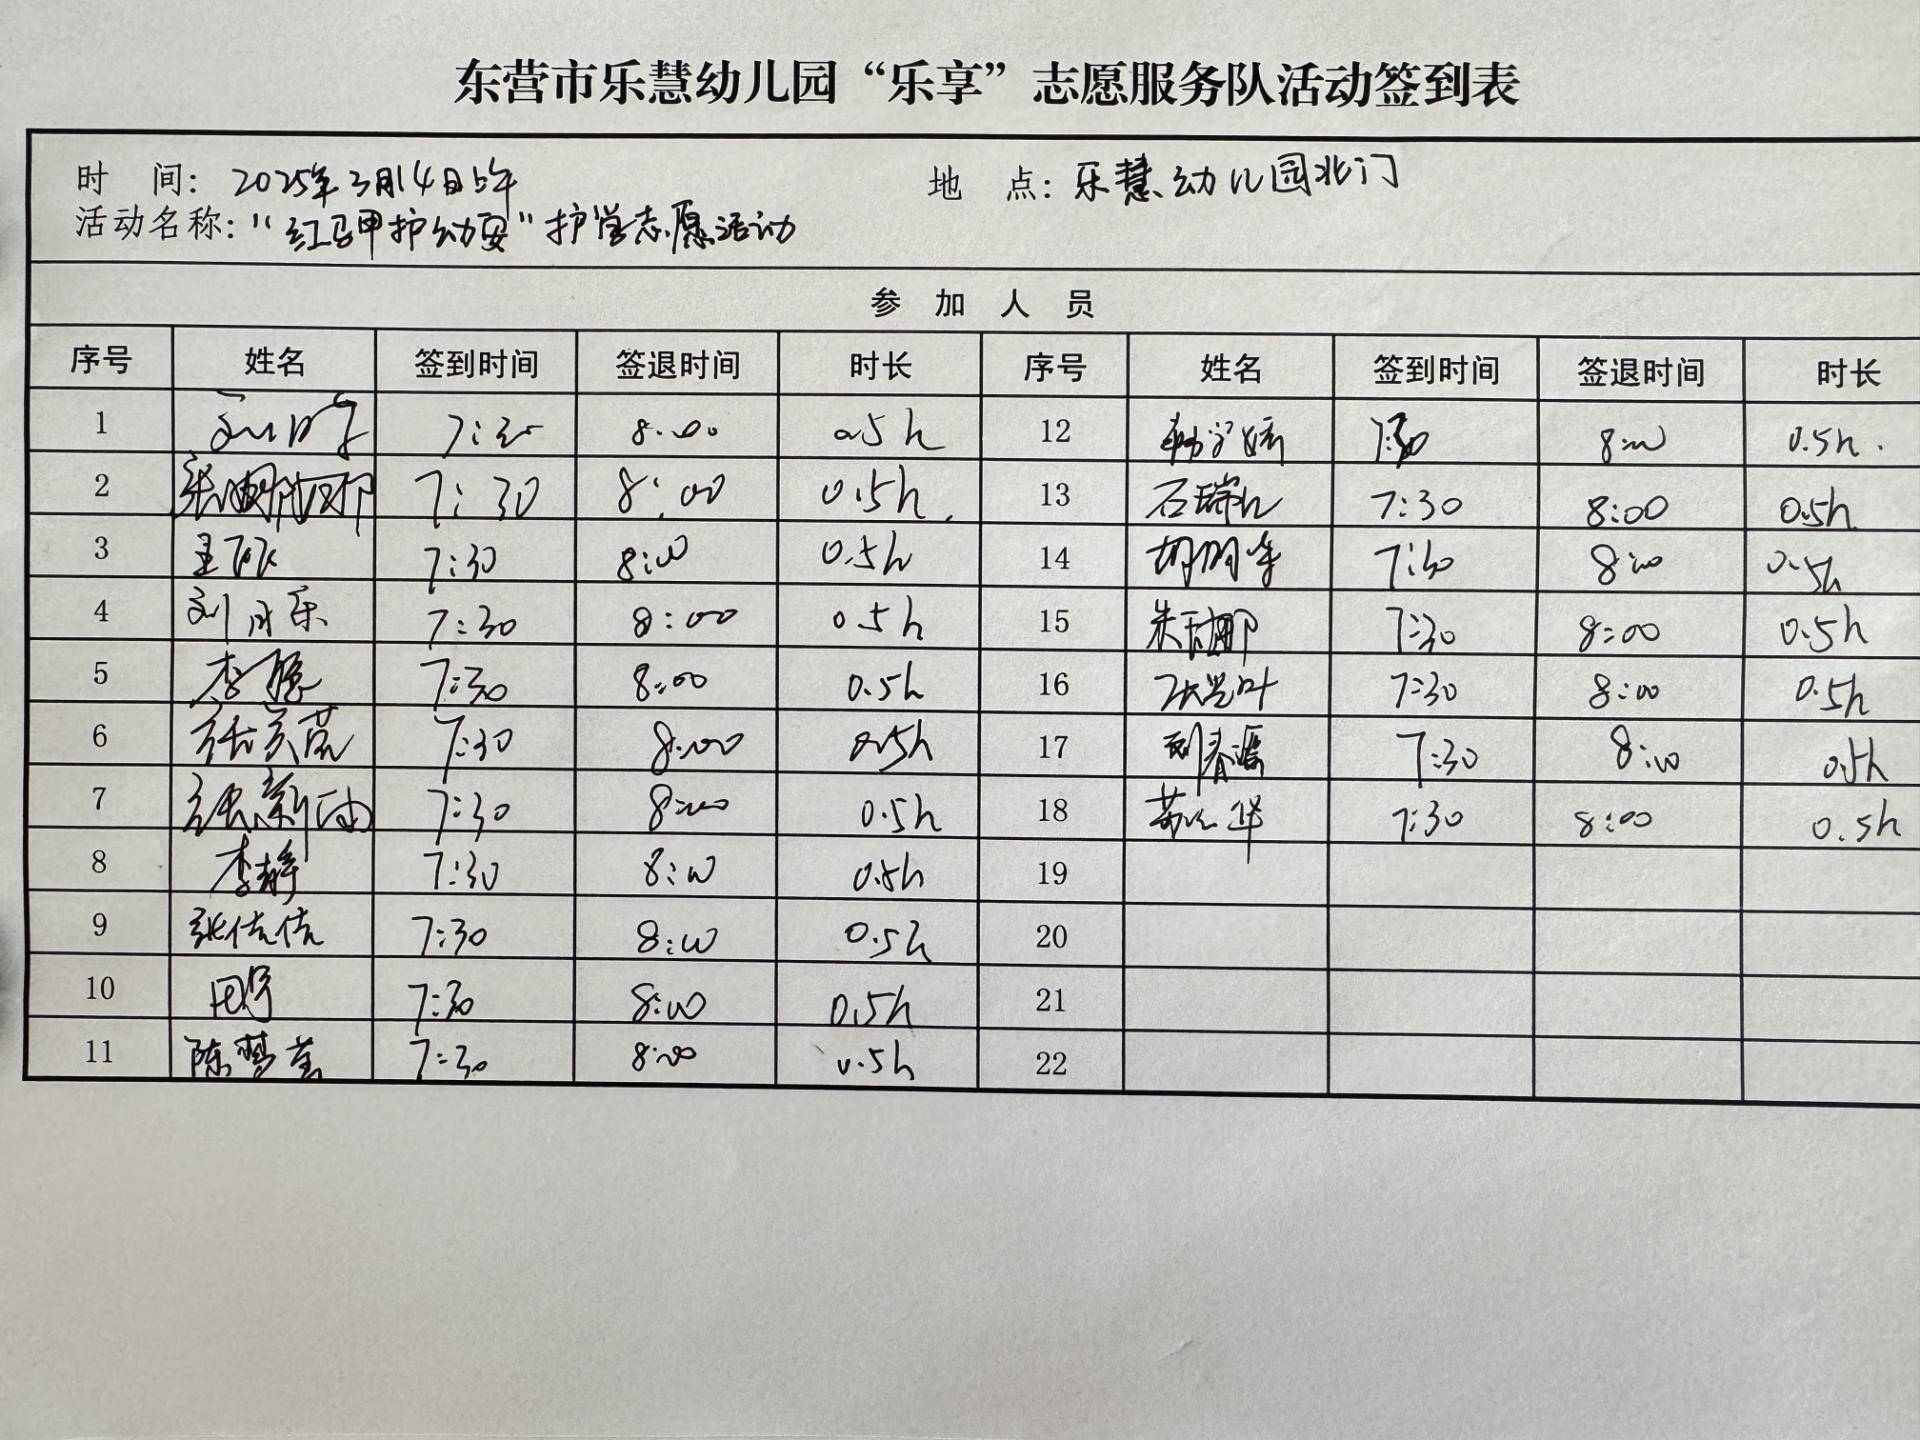 东营市乐慧幼儿园“乐享”志愿服务队活动签到表
时 间：2025年3月14日上午 地 点：乐慧幼儿园北门
活动名称：“红马甲护幼安”护学志愿活动
参 加 人 员
序号 姓名 签到时间 签退时间 时长 序号 姓名 签到时间 签退时间 时长
1 7:30 8:00 0.5h 12 7:30 8:00 0.5h.
2 张娜娜 7:30 8:00 0.5h. 13 石瑞 7:30 8:00 0.5h
3 王 7:30 8:00 0.5h 14 胡明华 7:30 8:00 0.5h
4 刘月乐 7:30 8:00 0.5h 15 朱 7:30 8:00 0.5h
5 李 7:30 8:00 0.5h 16 7:30 8:00 0.5h
6 张 7:30 8:00 0.5h 17 刘春 7:30 8:00 0.5h
7 张新 7:30 8:00 0.5h 18 华 7:30 8:00 0.5h
8 李静 7:30 8:00 0.5h 19
9 张倩倩 7:30 8:00 0.5h 20
10 田宁 7:30 8:00 0.5h 21
11 陈梦 7:30 8:00 0.5h 22